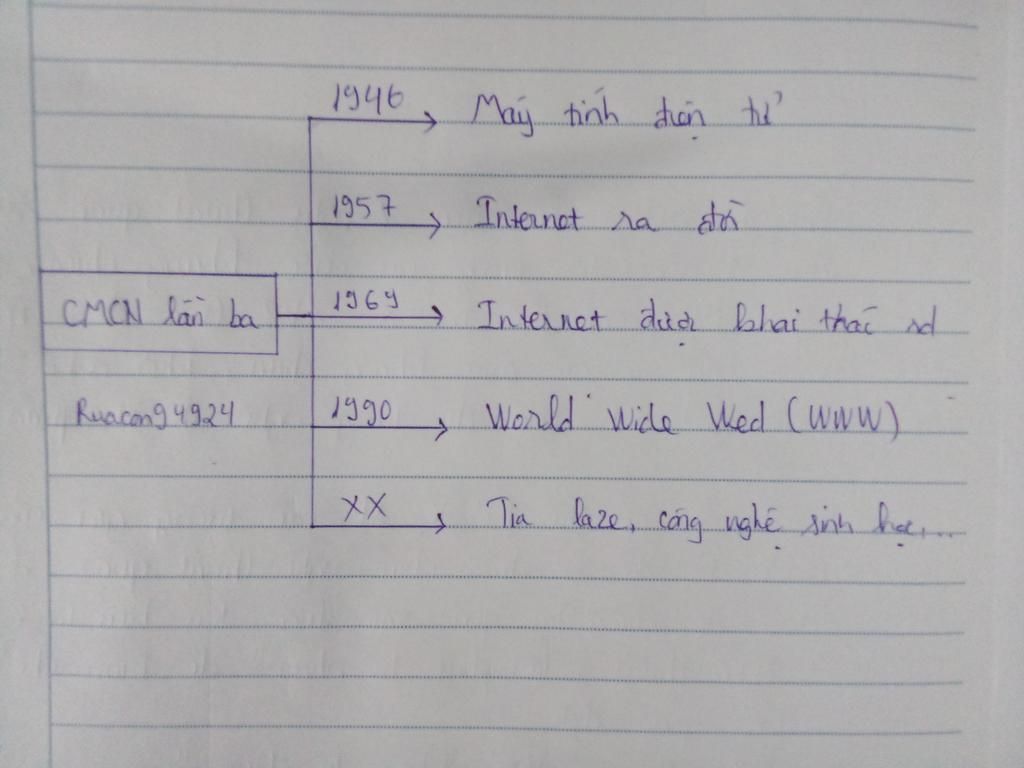 1946 Máy tính điện tử
1957 Internet ra đời
CMCN lần ba
1969 Internet được khai thác sd
Ruacon94924
1990 World Wide Wed (WWW)
XX Tia laze, công nghệ sinh học,...